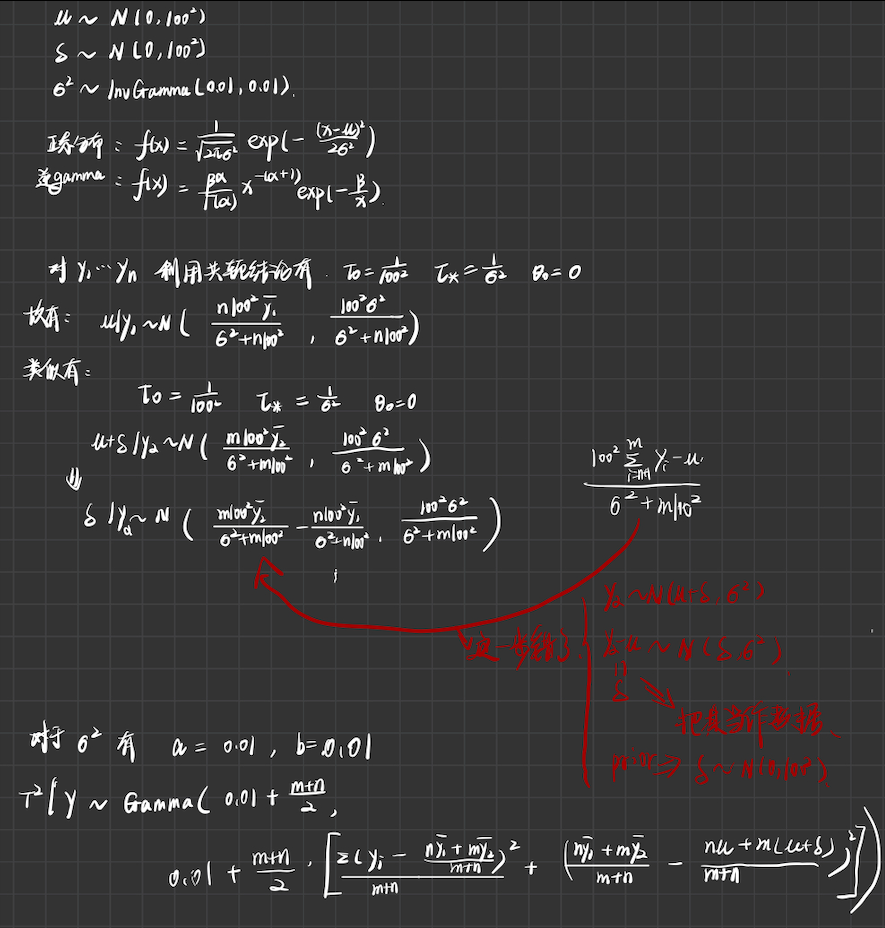 μ ~ N(0,100²)
δ ~ N(0,100²)
σ² ~ InvGamma(0.01, 0.01).
正态分布：f(x) = 1/√(2πσ²) exp(-(x-μ)²/2σ²)
逆gamma：f(x) = βα/Γ(α) x^-(α+1) exp(-β/x).
对 y₁…yₙ 利用共轭结论有. τ₀ = 1/100² τ* = 1/σ² θ₀ = 0
故有：μ|y₁ ~ N( n100²ȳ₁/(σ²+n100²) , 100²σ²/(σ²+n100²) )
类似有：
τ₀ = 1/100² τ* = 1/σ² θ₀=0
μ+δ|y₂ ~ N( m100²ȳ₂/(σ²+m100²) , 100²σ²/(σ²+m100²) )
⇓
100² Σ_{i=n+1}^{m} yᵢ-μ / (σ²+m100²)
δ|y₂ ~ N ( m100²ȳ₂/(σ²+m100²) - n100²ȳ₁/(σ²+n100²) , 100²σ²/(σ²+m100²) )
这一步错了
y₂ ~ N(μ+δ, σ²)
y₂-μ ~ N(δ, σ²)
δ
把其当作数据、
prior ⇒ δ ~ N(0,100²)
对于 σ² 有 a = 0.01 , b=0.01
τ²|y ~ Gamma( 0.01 + (m+n)/2 ,
0.01 + (m+n)/2 · [ Σ(yᵢ - (nȳ₁+mȳ₂)/(m+n))²/(m+n) + ( (nȳ₁+mȳ₂)/(m+n) - (nμ+m(μ+δ))/(m+n) )² ] )